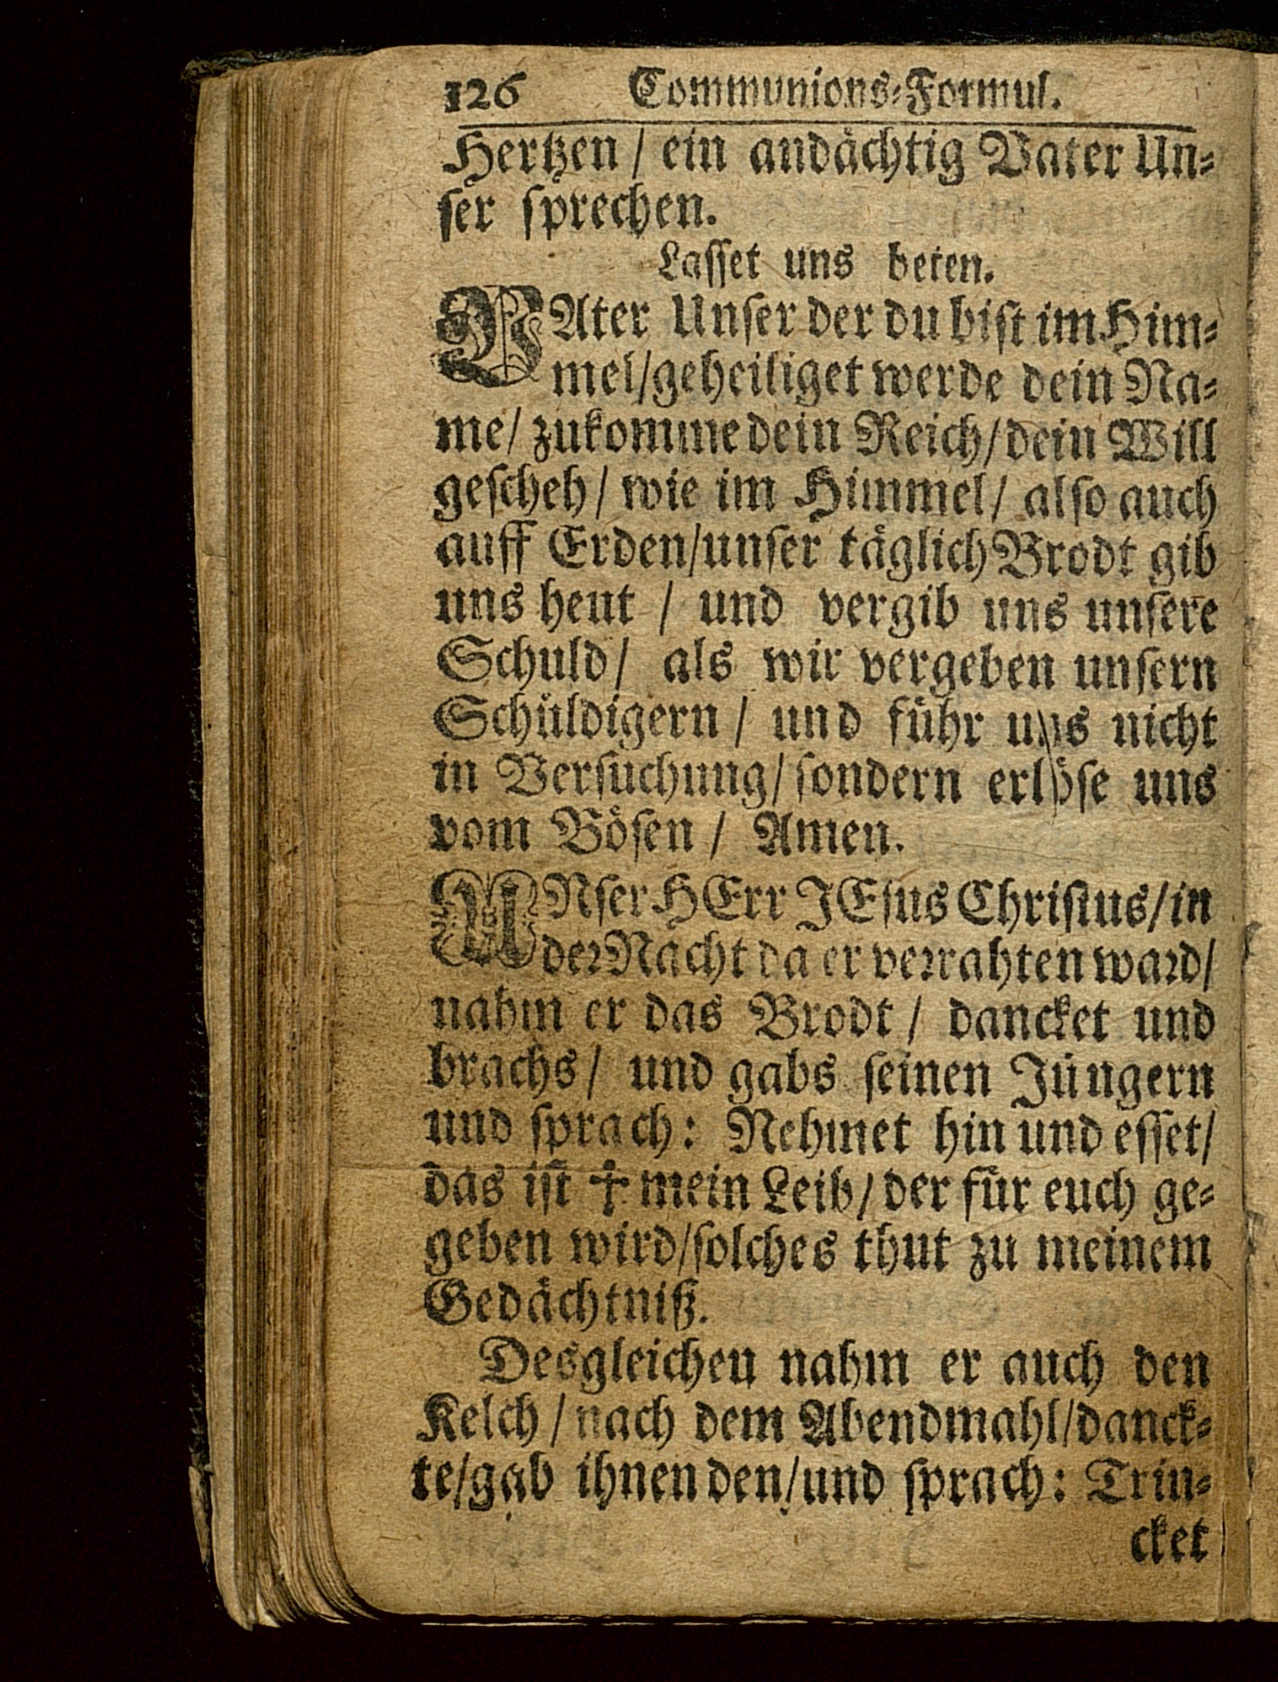 126 Communions-Formul.
Hertzen / ein andächtig Vater Un-
ser sprechen.
Lasset uns beten.
VAter Unser der du bist im Him-
mel/geheiliget werde dein Na-
me/ zukomme dein Reich/dein Will
gescheh/ wie im Himmel/ also auch
auff Erden/unser täglich Brodt gib
uns heut / und vergib uns unsere
Schuld/ als wir vergeben unsern
Schüldigern / und führ uns nicht
in Versuchung/ sondern erlöse uns
vom Bösen / Amen.
UNser HErr JEsus Christus/in
der Nacht da er verrahten ward/
nahm er das Brodt / dancket und
brachs/ und gabs seinen Jüngern
und sprach: Nehmet hin und esset/
das ist ✝ mein Leib/ der für euch ge-
geben wird/solches thut zu meinem
Gedächtniß.
Desgleichen nahm er auch den
Kelch / nach dem Abendmahl/danck-
te/gab ihnen den/und sprach: Trin-
cket